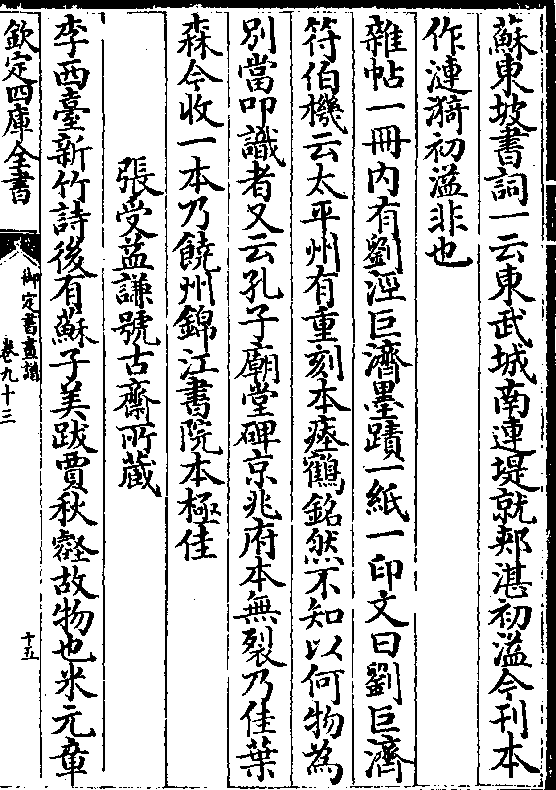 蘇東坡書詞一云東武城南連堤就郟湛初溢今刊本
作漣漪初溢非也
雜帖一冊内有劉涇巨濟墨蹟一紙一印文曰劉巨濟
符伯機云太平州有重刻本瘞鶴銘然不知以何物為
別當叩識者又云孔子廟堂碑京兆府本無裂乃佳葉
森今收一本乃饒州錦江書院本極佳
張受益謙號古齋所蔵
李西臺新竹詩後有蘇子美跋賈秋壑故物也米元章
欽定四庫全書
御定書畫譜
卷九十三
十五